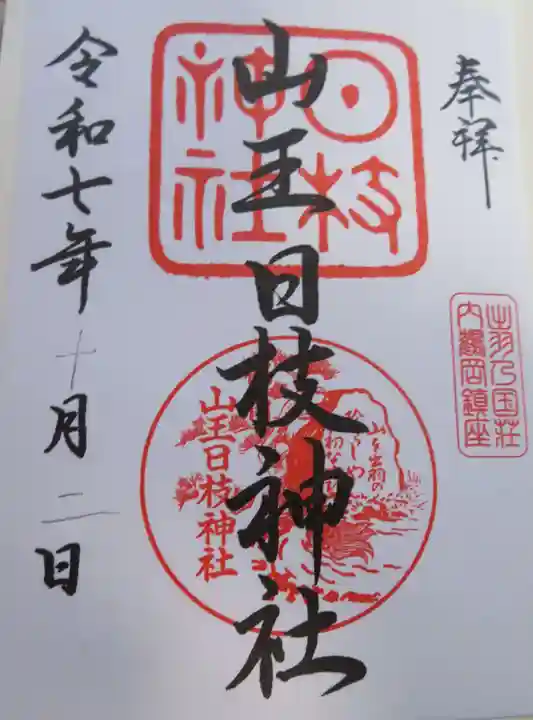 奉拝
出羽乃国荘
内鶴岡鎮座
日枝
神社
山王日枝神社
山王日枝神社
令和七年十月二日